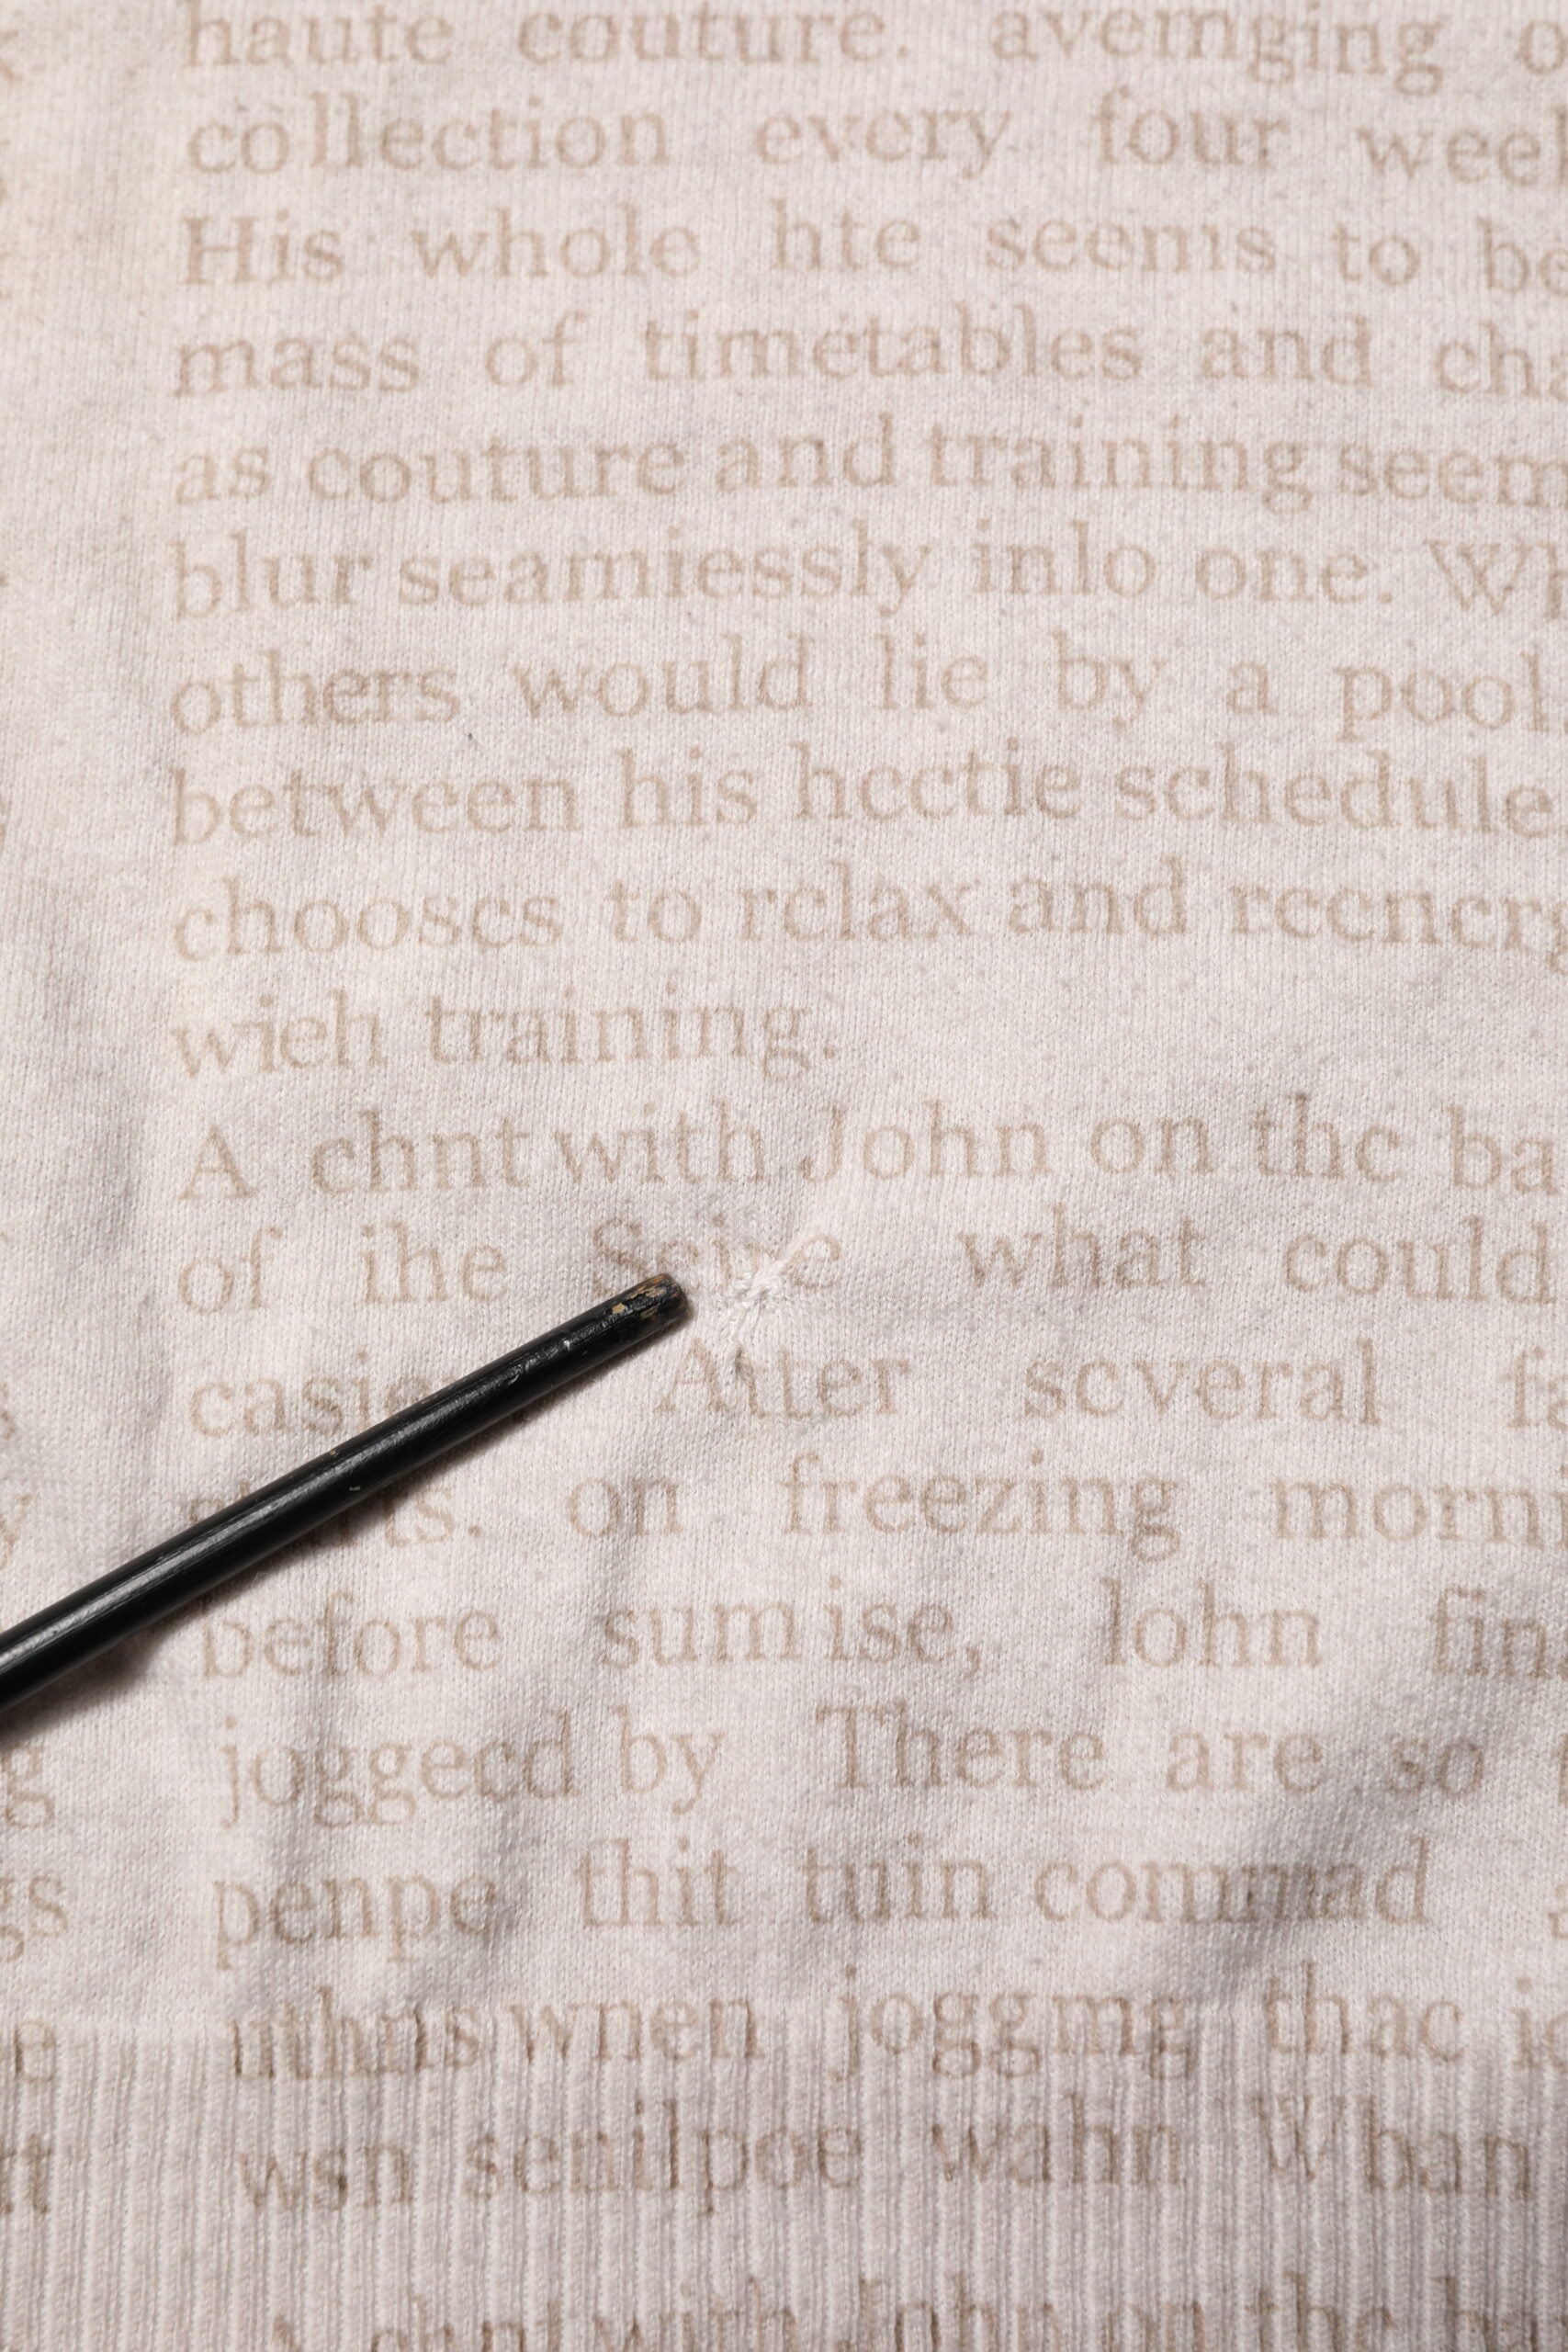 haute couture. avemging
collection every four
His whole hte seems to
mass of timetables and
as couture and training
blur seamiessly inlo one.
others would lie by a pool.
between his hcctie schedule
chooses to relax and
wieh training.
A chnt with John on thc
of ihe what could
Atter scveral
on freezing
before sumise, lohn
joggecd by There are so
penpe thit tuin commad
uthnis wnen joggmg thac
wsn senilpoe wahn Whan
A chnt with John on the